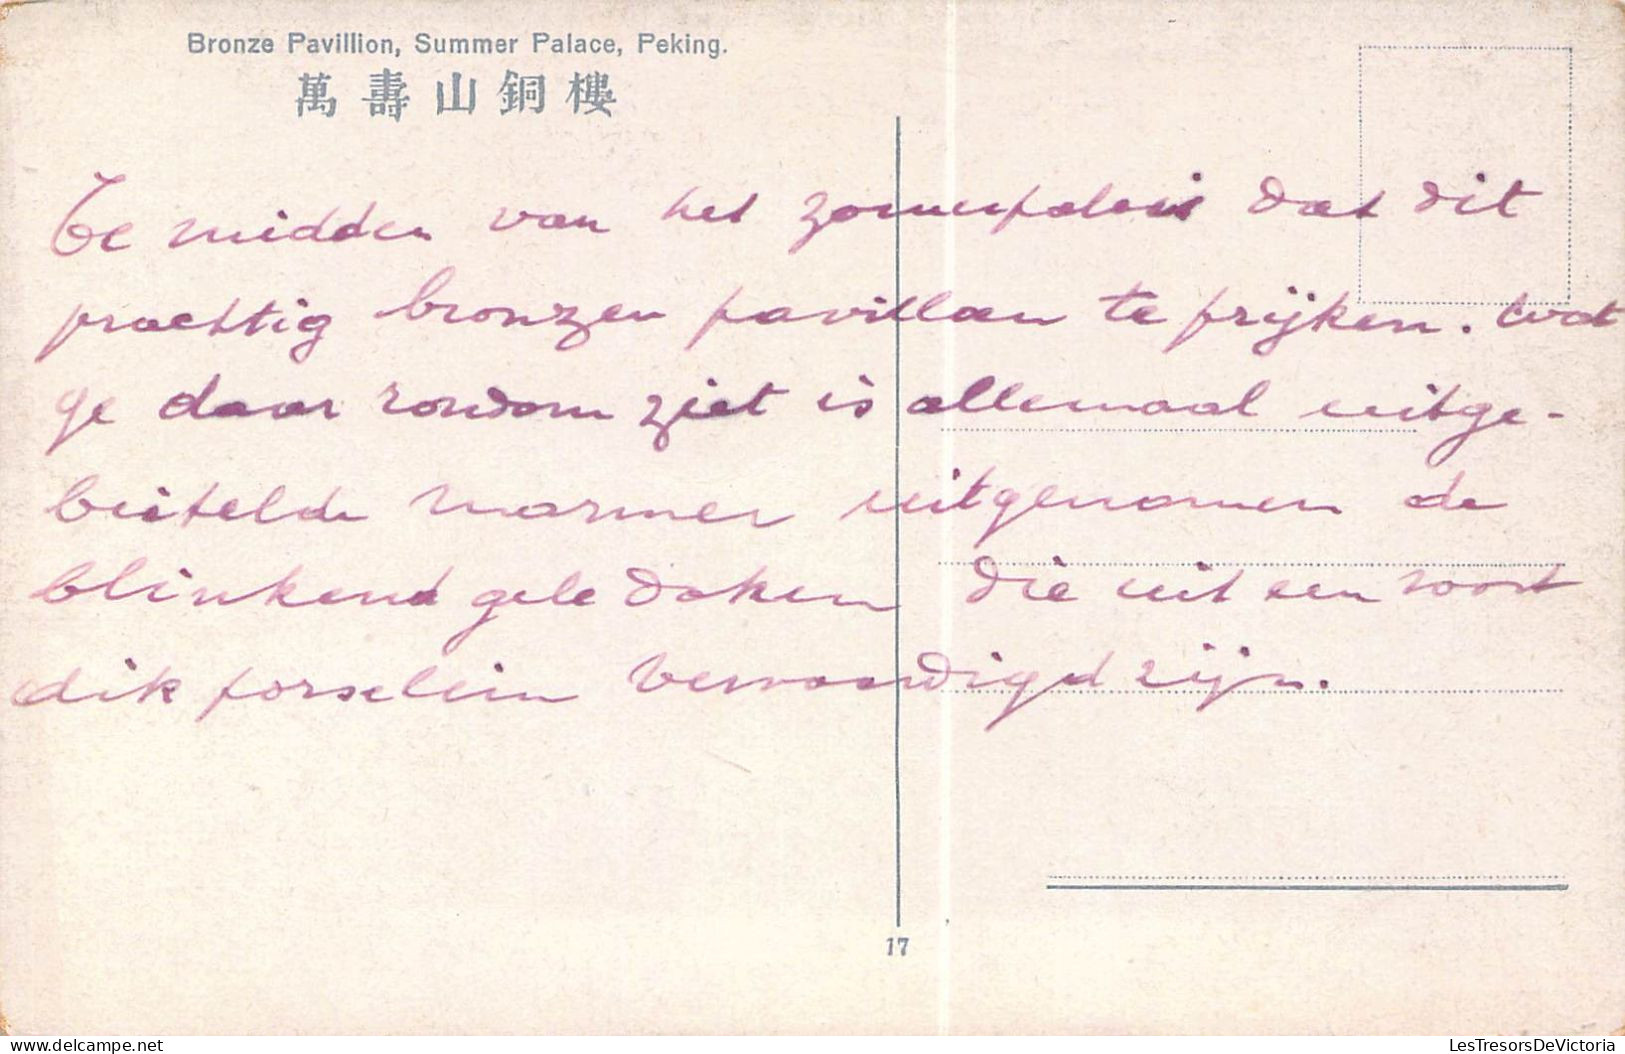 Bronze Pavillion, Summer Palace, Peking.
萬壽山銅樓
Te midden van het zomerpaleis dat dit
prachtig bronzen pavillon te prijken. Wat
ge daar rondom ziet is allemaal uitge-
beitelde marmer uitgenomen de
blinkend gele daken die uit een soort
dik porselein vervaardigd zijn.
17
LesTresorsDeVictoria
delcampe.net